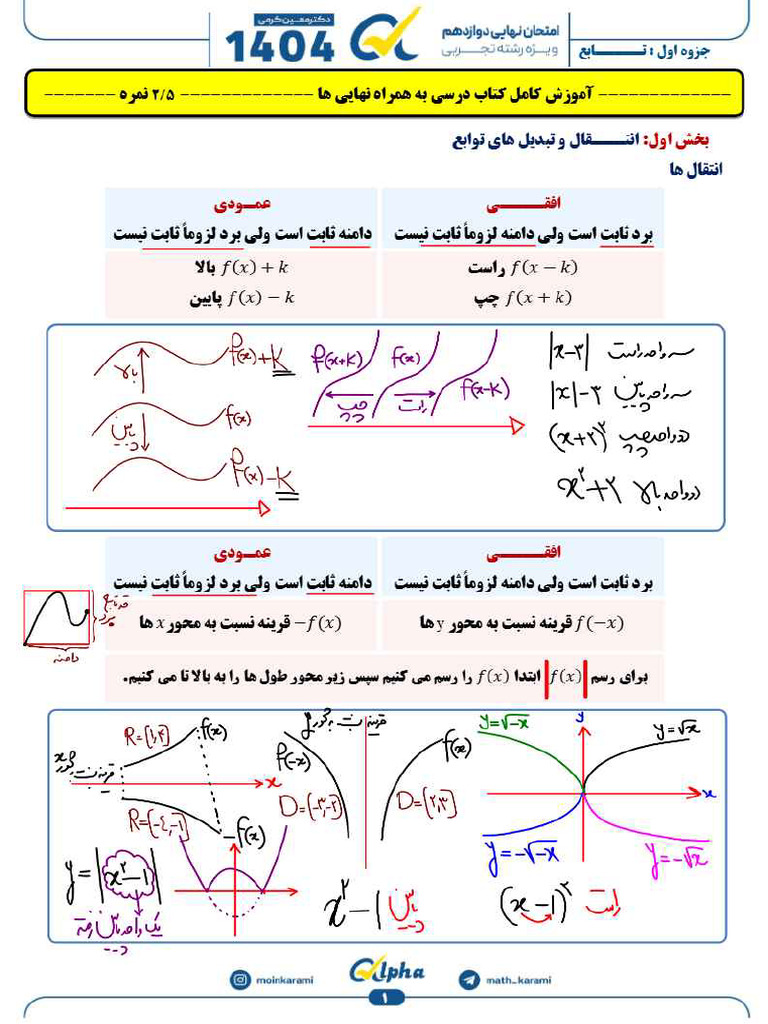 جزوه اول : تـــــابع
امتحان نهایی دوازدهم
ویـژه رشته تجـربـی
دکترمعین‌کرمی
1404
------------- آموزش کامل کتاب درسی به همراه نهایی ها ------------- ۲/۵ نمره -------
بخش اول: انتـــــقال و تبدیل های توابع
انتقال ها
افقـــــی
عمـــودی
برد ثابت است ولی دامنه لزوماً ثابت نیست
دامنه ثابت است ولی برد لزوماً ثابت نیست
f(x − k) راست
f(x) + k بالا
f(x + k) چپ
f(x) − k پایین
f(x)+k
بالا
f(x)
پایین
f(x)-k
f(x+k)
f(x)
f(x-k)
چپ
راست
|x-۳| سه واحد راست
|x|-۳ سه واحد پایین
(x+۲)^۳ دو واحد چپ
x^۲+۲ دو واحد بالا
افقـــــی
عمـــودی
برد ثابت است ولی دامنه لزوماً ثابت نیست
دامنه ثابت است ولی برد لزوماً ثابت نیست
f(−x) قرینه نسبت به محور y ها
−f(x) قرینه نسبت به محور x ها
برد
دامنه
برای رسم |f(x)| ابتدا f(x) را رسم می کنیم سپس زیر محور طول ها را به بالا تا می کنیم.
R=[۱,۴]
f(x)
قرینه نسبت
محور x
x
R=[-۴,-۱]
-f(x)
قرینه نسبت به محور y
f(-x)
f(x)
D=[-۳,-۲]
D=[۲,۳]
y=√-x
y
y=√x
x
y=-√-x
y=-√x
y=|x^۲-1|
یک واحد پایین رفته
x^۲-1 پایین
(x-1)^۲ راست
moinkarami
Alpha
math_karami
۱